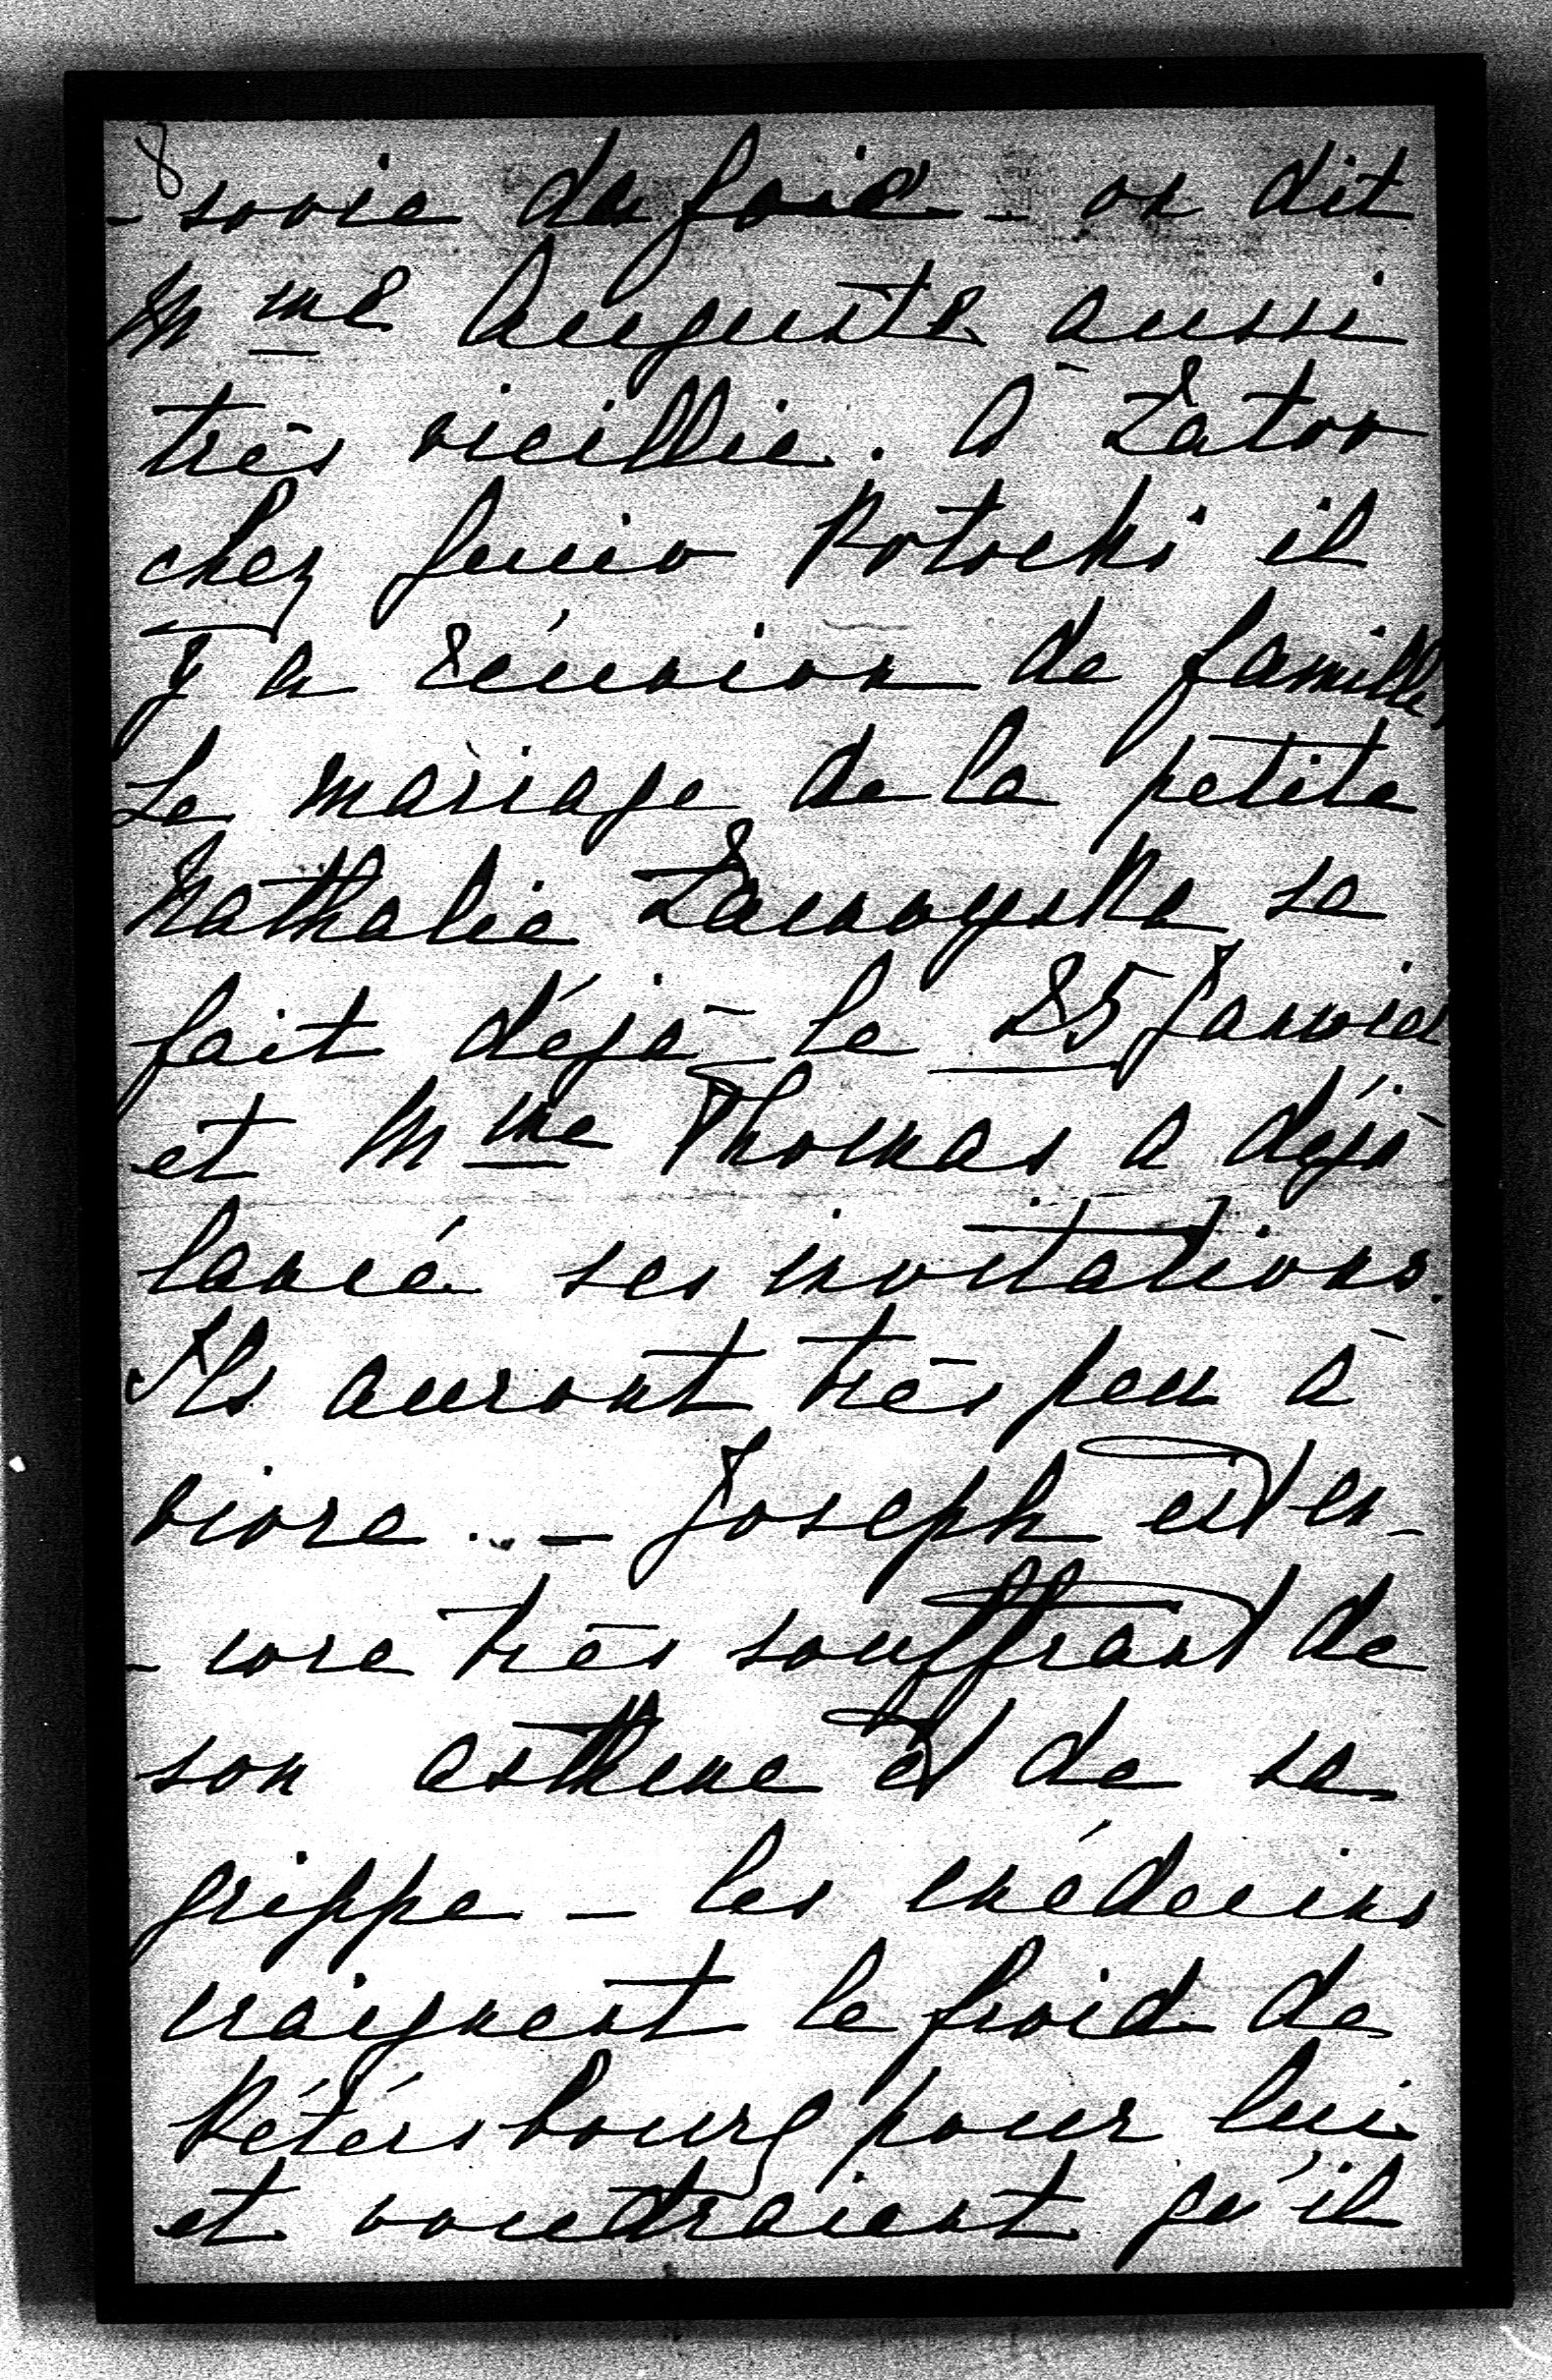 8
- sovie du foie - on dit
Mme Auguste aussi
très vieillie. A Zator
chez Gucio Potocki il
y a réunion de famille,
Le mariage de la petite
Nathalie se
fait déjà le 25 Janvier
et Mme Thomas a déjà
lancé ses invitations.
Ils auront très peu à
vivre. - Joseph est en-
- core très souffrant de
son asthme et de sa
grippe - les médecins
craignent le froid de
Pétérsbourg pour lui
et voudraient qu'il